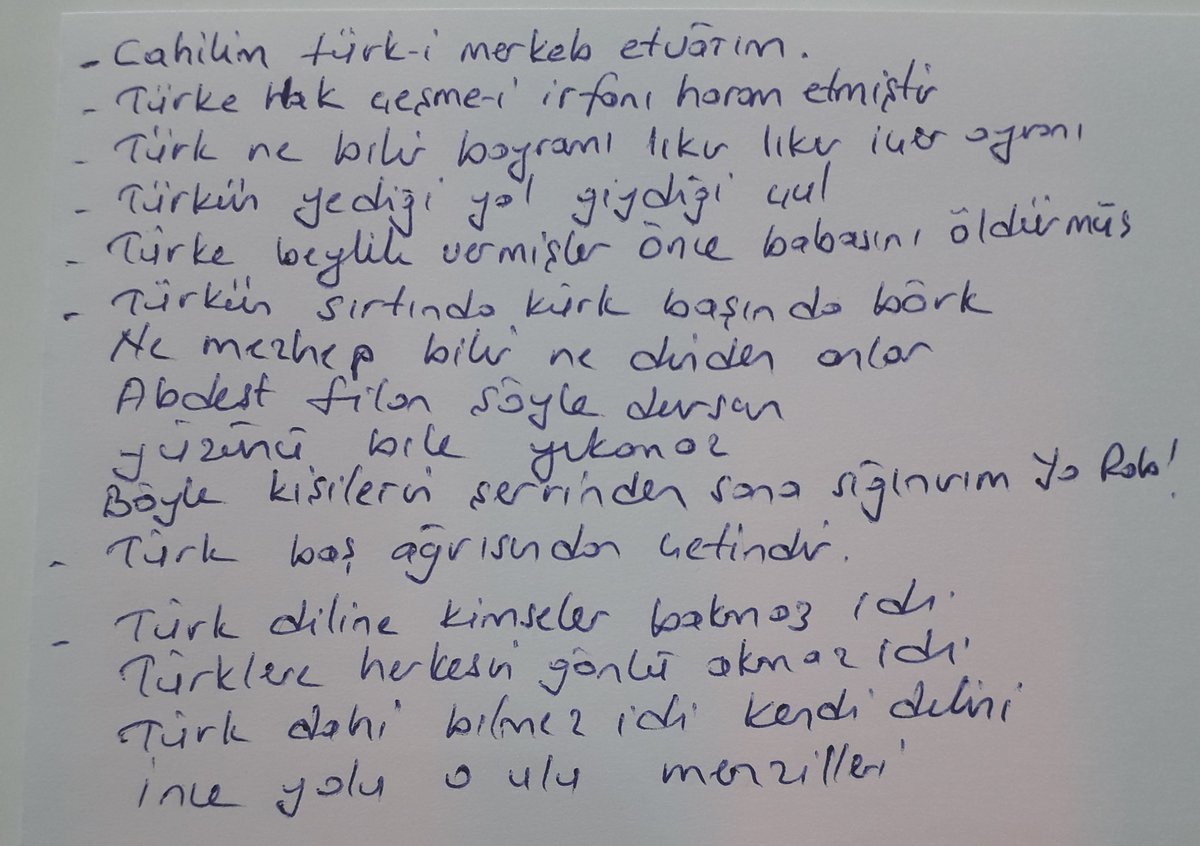 - Cahilim türk-i merkeb etvârım.
- Türke Hak çeşme-i irfanı haram etmiştir
- Türk ne bilir bayramı lıkır lıkır içer ayranı
- Türkün yediği yal giydiği çul
- Türke beylik vermişler önce babasını öldürmüş
- Türkün sırtında kürk başında börk
Ne mezhep bilir ne dinden anlar
Abdest filan şöyle dursun
yüzünü bile yıkamaz
Böyle kişilerin şerrinden sana sığınırım Ya Rab!
- Türk baş ağrısından çetindir.
- Türk diline kimseler bakmaz idi.
Türklere herkesin gönlü akmaz idi
Türk dahi bilmez idi kendi dilini
ince yolu o ulu menzilleri